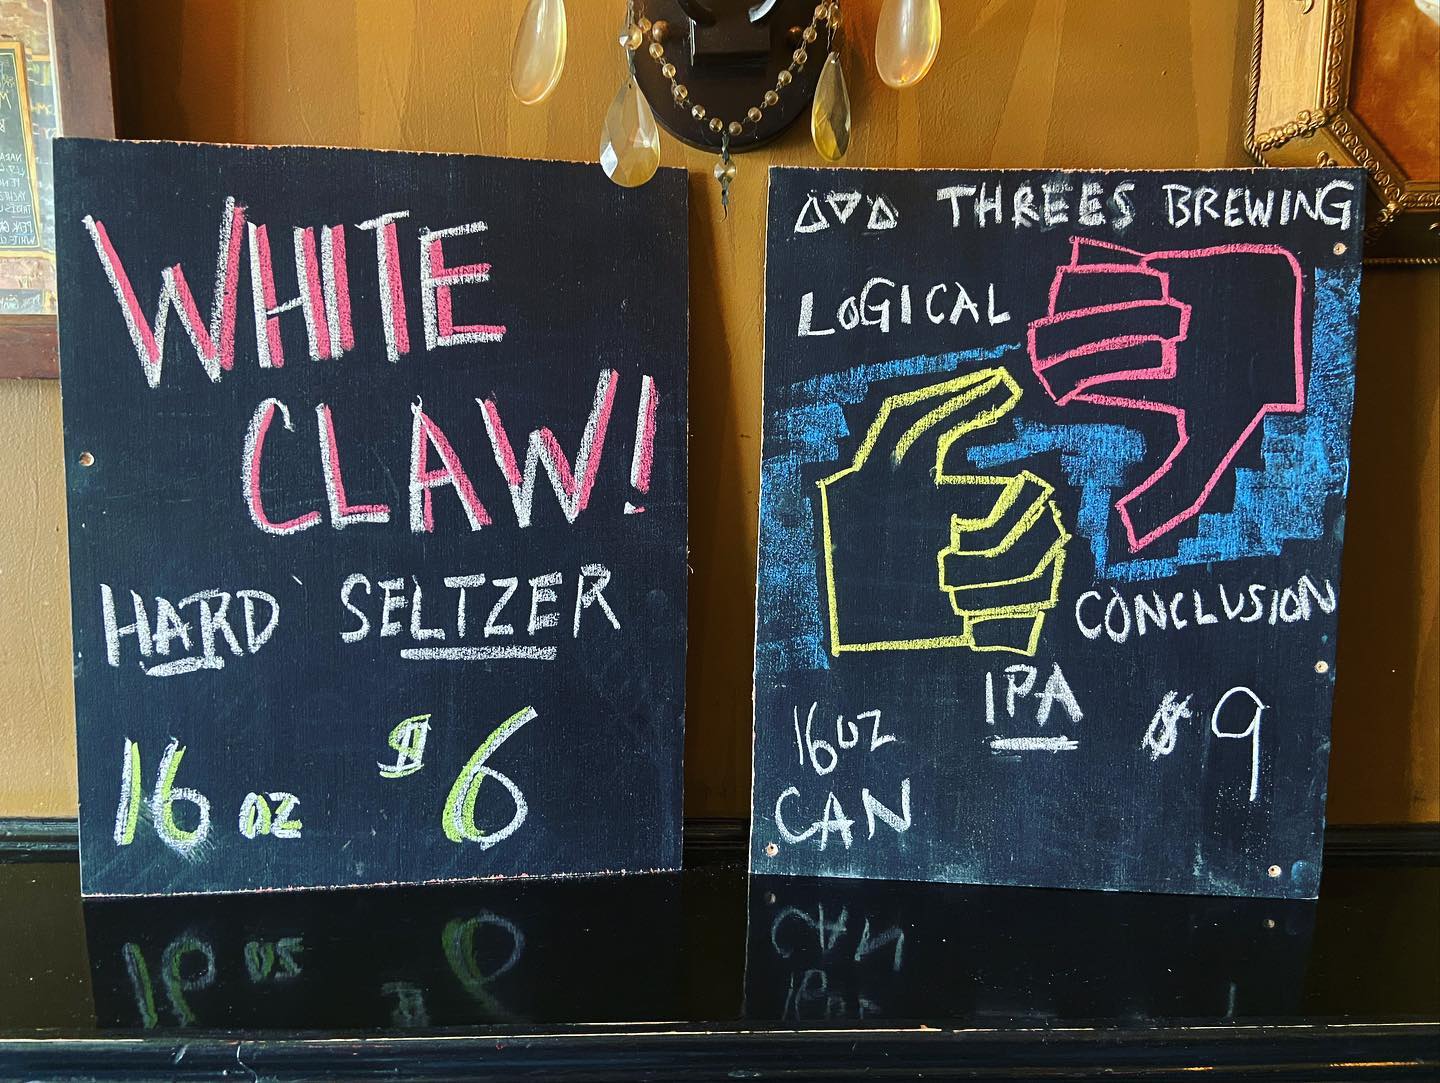 WHITE
CLAW!
HARD SELTZER
16 oz $6
THREES BREWING
LOGICAL
CONCLUSION
IPA
16 oz
CAN
$9